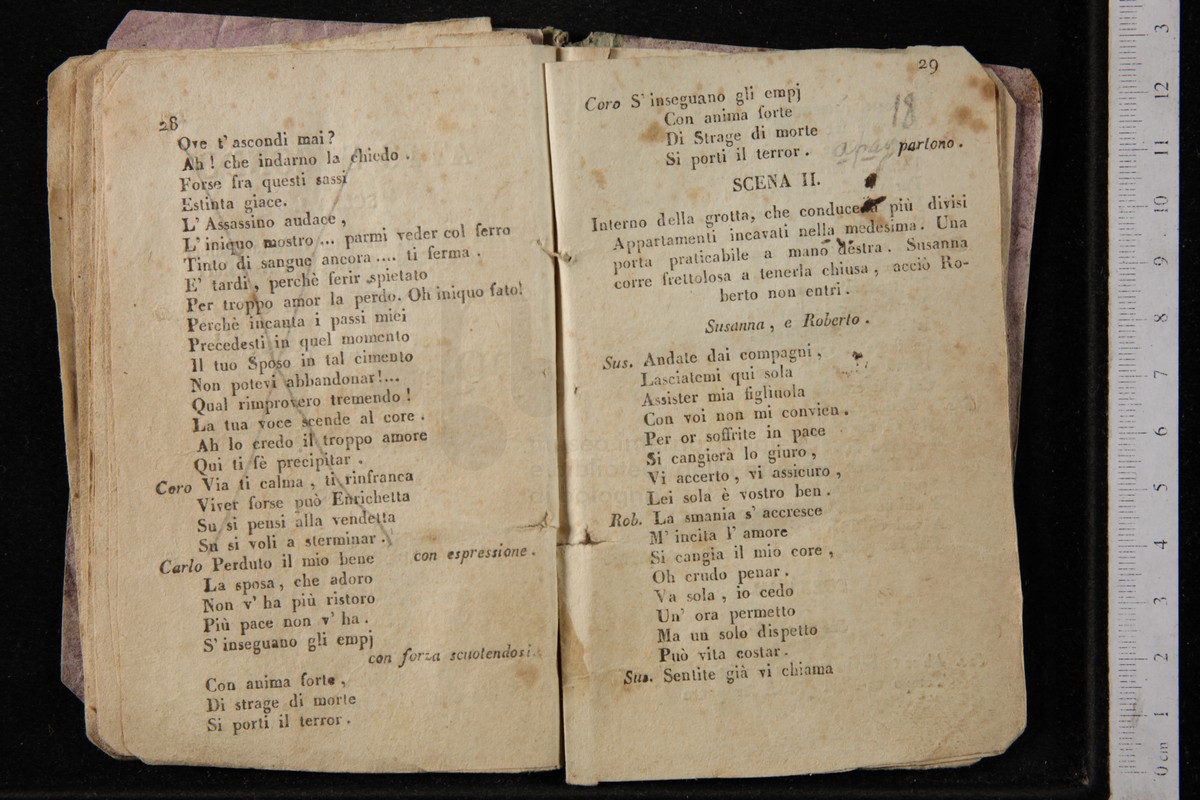 28
Ove t' ascondi mai?
Ah! che indarno la chiedo.
Forse fra questi sassi
Estinta giace.
L' Assassino audace,
L' iniquo mostro ... parmi veder col ferro
Tinto di sangue ancora .... ti ferma.
E' tardi, perchè ferir spietato
Per troppo amor la perdo. Oh iniquo fato!
Perchè incanta i passi miei
Precedesti in quel momento
Il tuo Sposo in tal cimento
Non potevi abbandonar!...
Qual rimprovero tremendo!
La tua voce scende al core.
Ah lo credo il troppo amore
Qui ti fè precipitar.
Coro Via ti calma, ti rinfranca
Viver forse può Enrichetta
Su si pensi alla vendetta
Su si voli a sterminar.
Carlo Perduto il mio bene con espressione.
La sposa, che adoro
Non v' ha più ristoro
Più pace non v' ha.
S' inseguano gli empj
con forza scuotendosi.
Con anima forte,
Di strage di morte
Si porti il terror.
29
Coro S' inseguano gli empj
Con anima forte
18
Di Strage di morte
Si porti il terror. partono.
SCENA II.
Interno della grotta, che conduce a più divisi
Appartamenti incavati nella medesima. Una
porta praticabile a mano destra. Susanna
corre frettolosa a tenerla chiusa, acciò Ro-
berto non entri.
Susanna, e Roberto.
Sus. Andate dai compagni,
Lasciatemi qui sola
Assister mia figliuola
Con voi non mi convien.
Per or soffrite in pace
Si cangierà lo giuro,
Vi accerto, vi assicuro,
Lei sola è vostro ben.
Rob. La smania s' accresce
M' incita l' amore
Si cangia il mio core,
Oh crudo penar.
Va sola, io cedo
Un' ora permetto
Ma un solo dispetto
Può vita costar.
Sus. Sentite già vi chiama